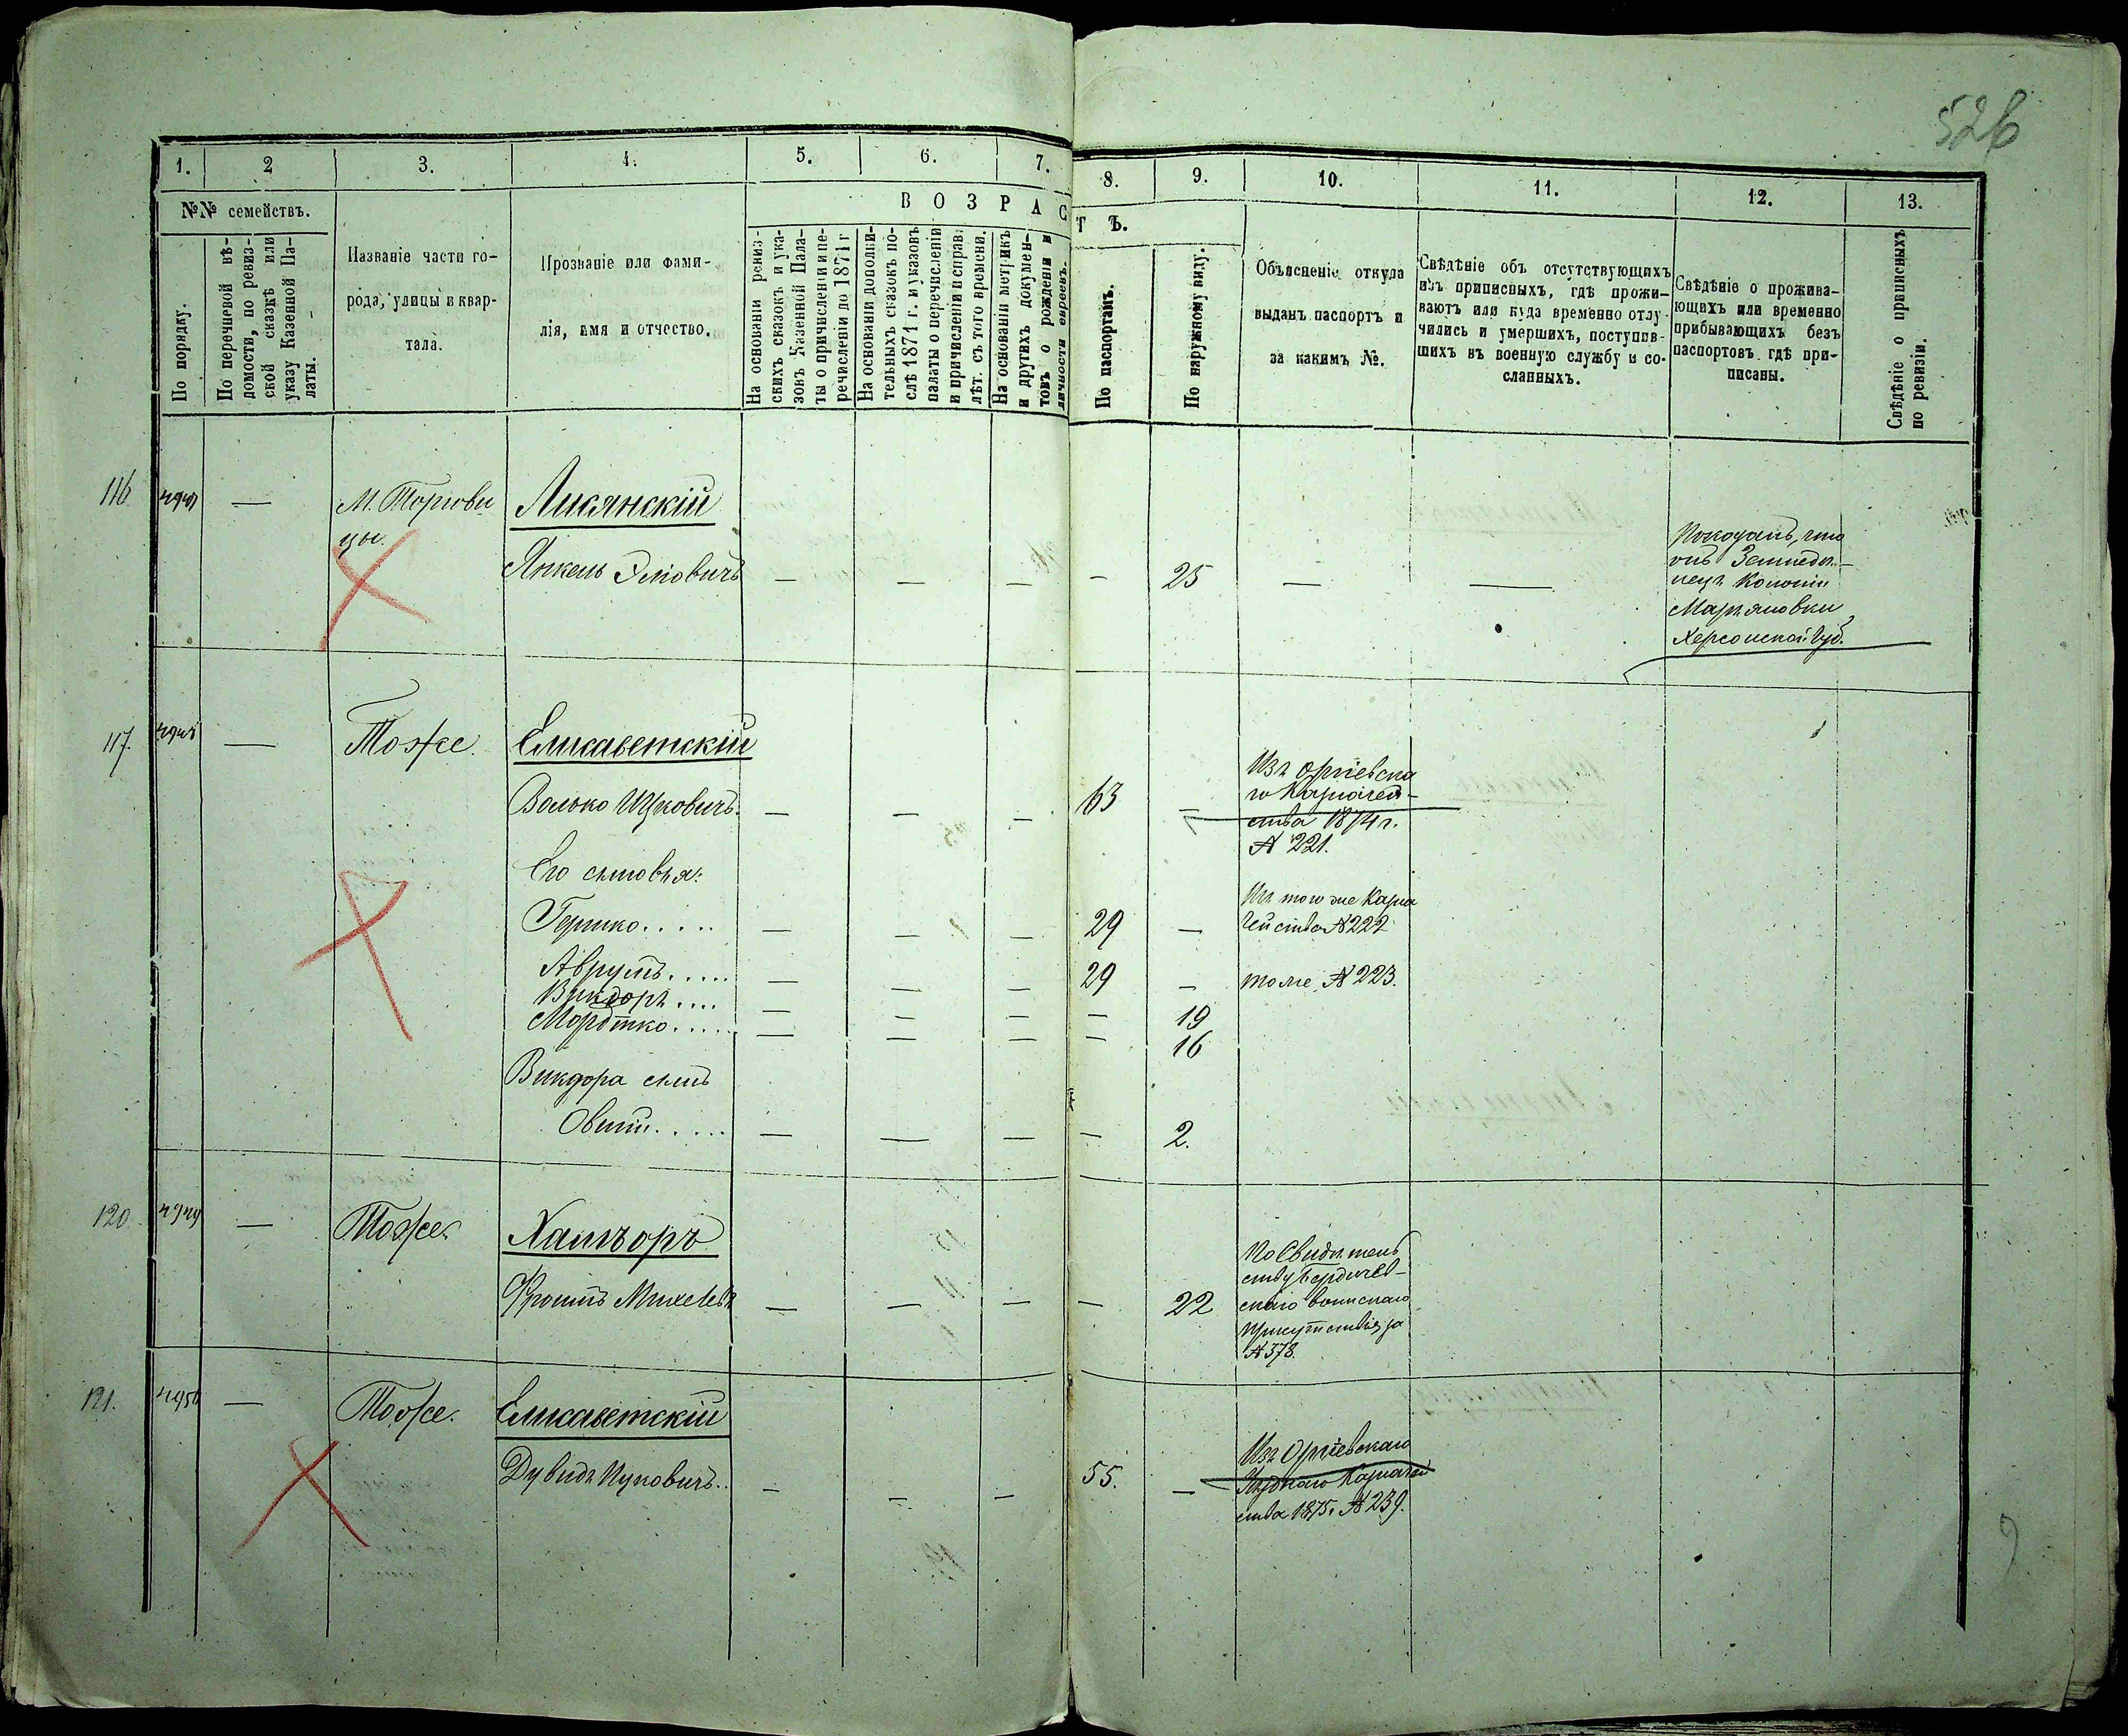 526
1. 2 3. 4. 5. 6. 7. 8. 9. 10. 11. 12. 13.
№№ семействъ.
По порядку.
По перечневой вѣ-
домости, по ревиз-
ской сказкѣ или
указу Казенной Па-
латы.
Названіе части го-
рода, улицы и квар-
тала.
Прозваніе или фами-
лія, имя и отчество.
ВОЗРАСТЪ.
На основаніи ревиз-
скихъ сказокъ и ука-
зовъ Казенной Пала-
ты о причисленіи и пе-
речисленіи до 1871 г
На основаніи дополни-
тельныхъ сказокъ по-
слѣ 1871 г. и указовъ
палаты о перечисленіи
и причисленіи и справ.
лѣт. съ того времени.
На основаніи метрикъ
и другихъ докумен-
товъ о рожденіи и
личности евреевъ.
По паспортамъ.
По наружному виду.
Объясненіе откуда
выданъ паспортъ и
за какимъ №.
Свѣдѣніе объ отсутствующихъ
изъ приписныхъ, гдѣ прожи-
ваютъ или куда временно отлу-
чились и умершихъ, поступив-
шихъ въ военную службу и со-
сланныхъ.
Свѣдѣніе о прожива-
ющихъ или временно
прибывающихъ безъ
паспортовъ гдѣ при-
писаны.
Свѣдѣніе о приписныхъ
по ревизіи.
116
— М. Торгови
цы.
Лисянскій
Янкель — — — — 25 — —
Показалъ, что
онъ
Колоніи
Марьяновки
Херсонской Губ.
117.
— Тоже. Елисаветскій
Волько Ицковичъ. — — — 63 —
Изъ Оргіевска
го Казначей-
ства 1874 г.
№ 221.
Его сыновья:
Гершко..... — — — 29 —
Изъ того же Казна
чейства № 222
Аврумъ..... — — — 29 — тоже № 223.
Викдоръ.... — — — — 19
Мордтко..... — — — — 16
Викдора сынъ
Овши..... — — — — 2.
120.
— Тоже
Фроимъ — — — — 22
По Свидѣтель
ству Бердичев-
скаго воинскаго
присутствія за
№ 378.
121.
— Тоже. Елисаветскій
Дувидъ Ицковичъ.. — — — 55. —
Изъ Оргіевскаго
Уѣзднаго Казначей
ства 1875 г. № 239.